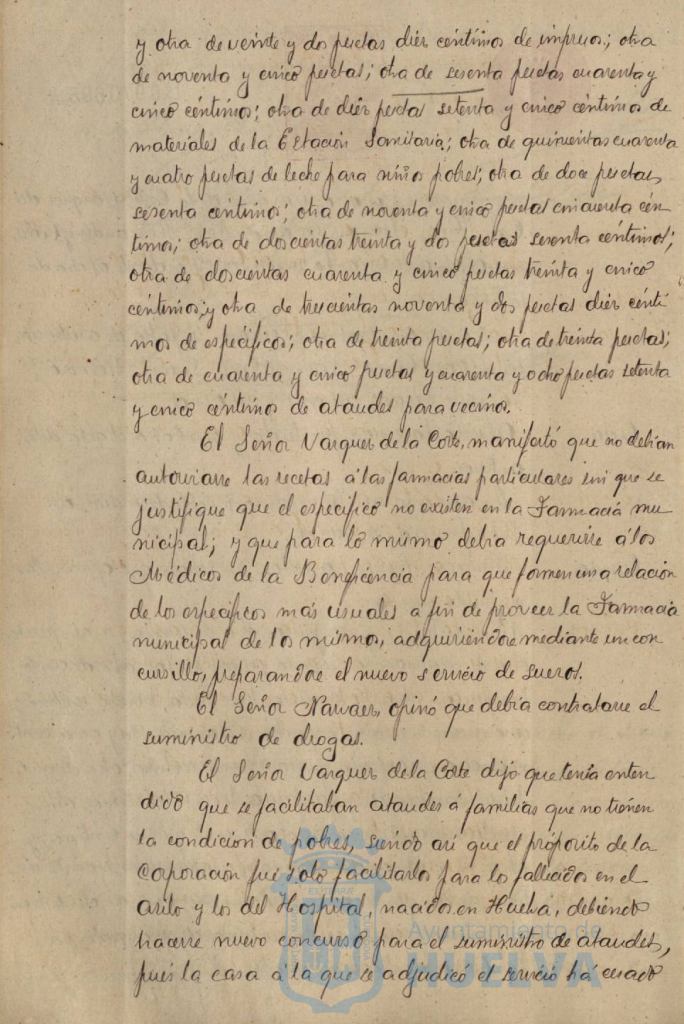 y otra de veinte y dos pesetas diez céntimos de impresos; otra
de noventa y cinco pesetas; otra de sesenta pesetas cuarenta y
cinco céntimos; otra de diez pesetas setenta y cinco céntimos de
materiales de la Estación Sanitaria; otra de quinientas cuarenta
y cuatro pesetas de leche para niños pobres; otra de doce pesetas
sesenta centimos; otra de noventa y cinco pesetas cincuenta cén
timos; otra de doscientas treinta y dos pesetas sesenta céntimos;
otra de doscientas cuarenta y cinco pesetas treinta y cinco
céntimos; y otra de trescientas noventa y dos pesetas diez cénti
mos de específicos; otra de treinta pesetas; otra de treinta pesetas;
otra de cuarenta y cinco pesetas y cuarenta y ocho pesetas setenta
y cinco céntimos de ataudes para vecinos.
El Señor Vazquez de la Corte, manifestó que no debian
autorizarse las recetas á las farmacias particulares sin que se
justifique que el especifico no existen en la Farmacia mu
nicipal; y que para lo mismo debia requerirse á los
Médicos de la Beneficencia para que formen una relación
de los especificos más usuales a fin de proveer la Farmacia
municipal de los mismos, adquiriendose mediante un con
cursillo, preparandose el nuevo servicio de sueros.
El Señor Narvaez, opinó que debia contratarse el
suministro de drogas.
El Señor Vazquez de la Corte dijo que tenía enten
dido que se facilitaban ataudes á familias que no tienen
la condicion de pobres, siendo asi que el próposito de la
Corporación fué solo facilitarlos para los fallecidos en el
Asilo y los del Hospital, nacidos en Huelva, debiendo
hacerse nuevo concurso para el suministro de ataudes,
pués la casa á la que se adjudicó el servicio há cesado
Ayuntamiento de
HUELVA